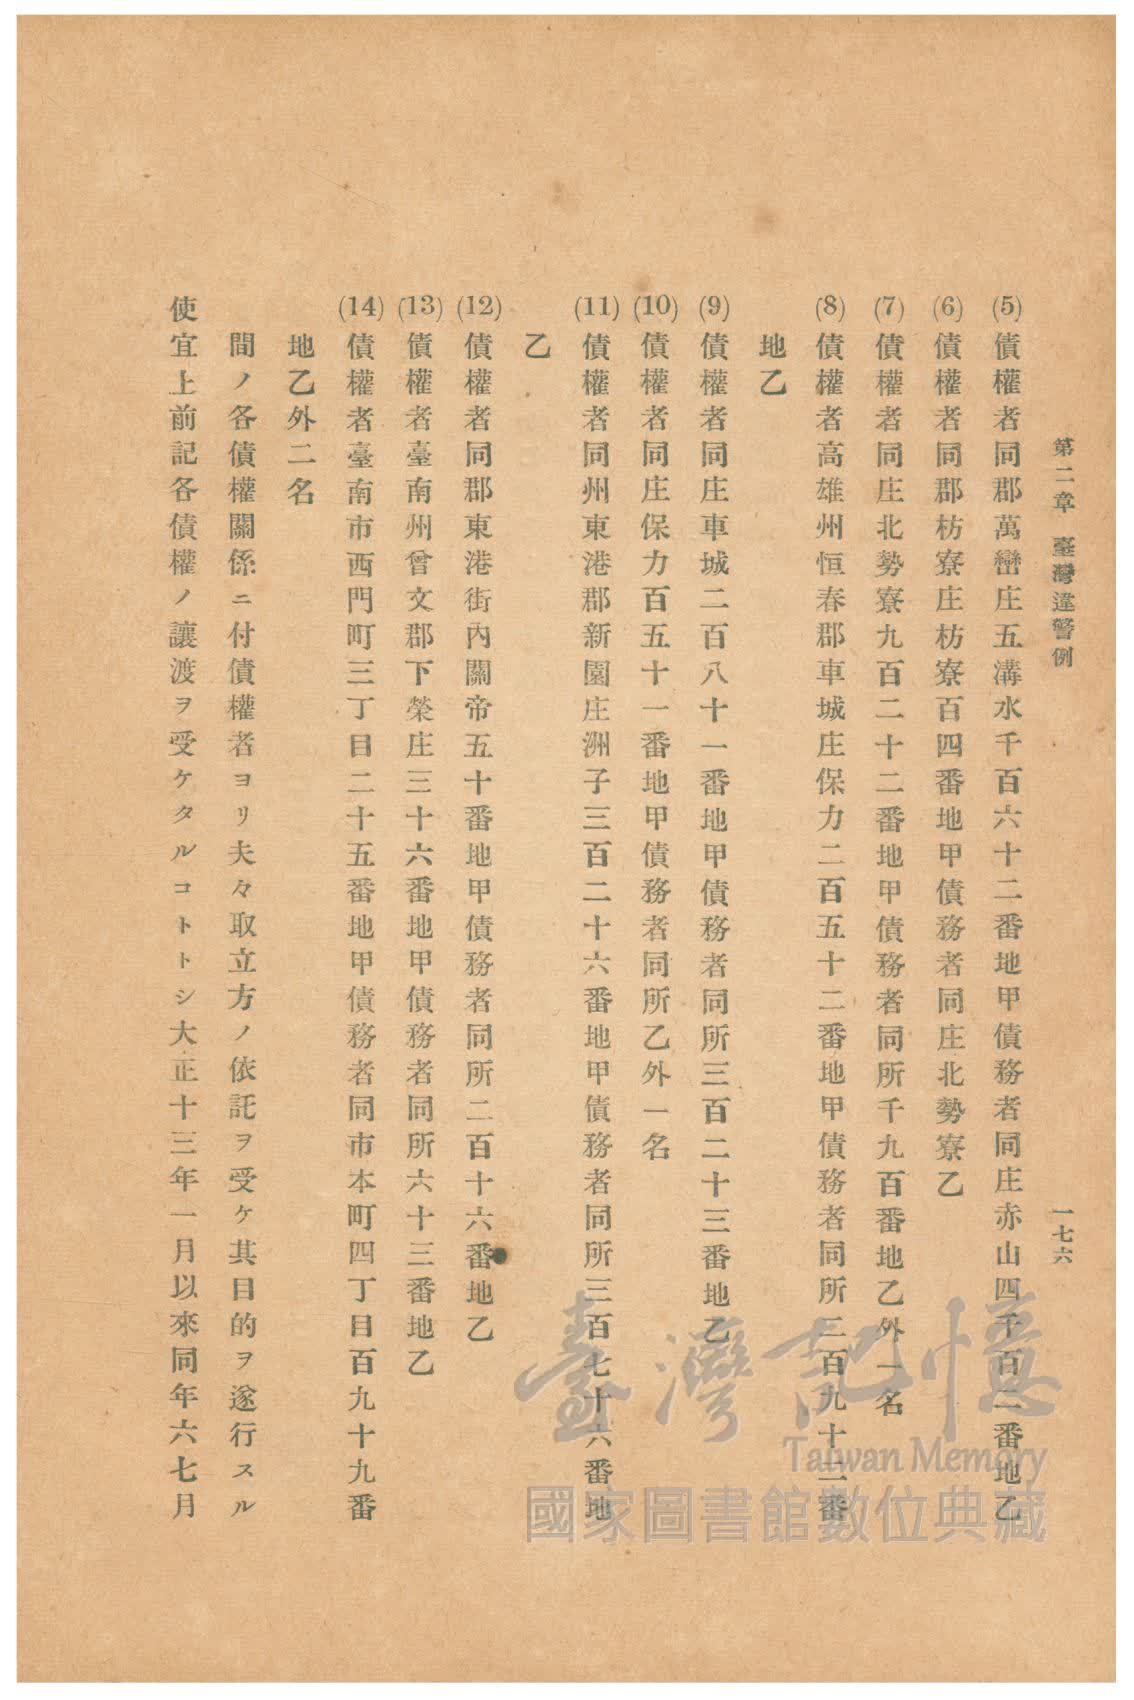 第二章　臺灣違警例　一七六
(5)債權者同郡萬巒庄五溝水千百六十二番地甲債務者同庄赤山四千百二番地乙
(6)債權者同郡枋寮庄枋寮百四番地甲債務者同庄北勢寮乙
(7)債權者同庄北勢寮九百二十二番地甲債務者同所千九百番地乙外一名
(8)債權者高雄州恒春郡車城庄保力二百五十二番地甲債務者同所二百九十二番
地乙
(9)債權者同庄車城二百八十一番地甲債務者同所三百二十三番地乙
(10)債權者同庄保力百五十一番地甲債務者同所乙外一名
(11)債權者同州東港郡新園庄洲子三百二十六番地甲債務者同所三百七十六番地
乙
(12)債權者同郡東港街內關帝五十番地甲債務者同所二百十六番地乙
(13)債權者臺南州曾文郡下榮庄三十六番地甲債務者同所六十三番地乙
(14)債權者臺南市西門町三丁目二十五番地甲債務者同市本町四丁目百九十九番
地乙外二名
間ノ各債權關係ニ付債權者ヨリ夫々取立方ノ依託ヲ受ケ其目的ヲ遂行スル
使宜上前記各債權ノ讓渡ヲ受ケタルコトトシ大正十三年一月以來同年六七月
臺灣記憶
Taiwan Memory
國家圖書館數位典藏